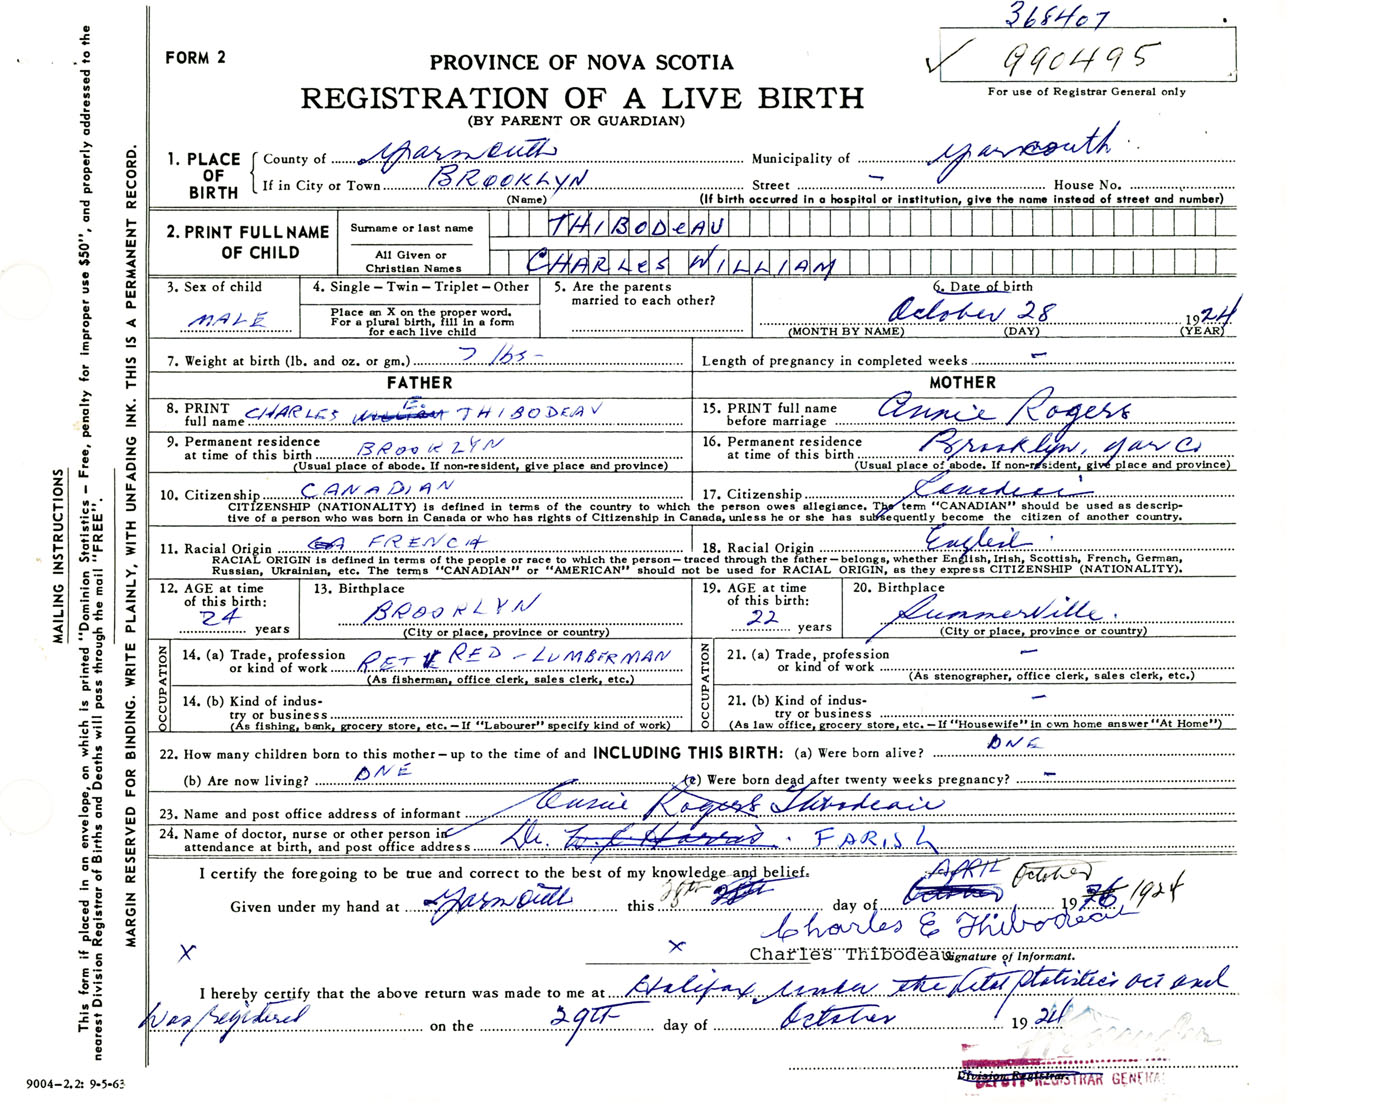 368407
FORM 2
PROVINCE OF NOVA SCOTIA
✓ 990495
REGISTRATION OF A LIVE BIRTH
For use of Registrar General only
(BY PARENT OR GUARDIAN)
1. PLACE OF BIRTH
County of Yarmouth Municipality of Yarmouth
If in City or Town BROOKLYN Street - House No.
(Name) (If birth occurred in a hospital or institution, give the name instead of street and number)
2. PRINT FULL NAME OF CHILD
Surname or last name THIBODEAU
All Given or Christian Names CHARLES WILLIAM
3. Sex of child
MALE
4. Single – Twin – Triplet – Other
Place an X on the proper word.
For a plural birth, fill in a form
for each live child
5. Are the parents
married to each other?
6. Date of birth
October 28 1924
(MONTH BY NAME) (DAY) (YEAR)
7. Weight at birth (lb. and oz. or gm.) 7 lbs - Length of pregnancy in completed weeks -
FATHER MOTHER
8. PRINT full name CHARLES E. THIBODEAU
15. PRINT full name before marriage Annie Rogers
9. Permanent residence at time of this birth BROOKLYN
(Usual place of abode. If non-resident, give place and province)
16. Permanent residence at time of this birth Brooklyn, Yar Co
(Usual place of abode. If non-resident, give place and province)
10. Citizenship CANADIAN 17. Citizenship
CITIZENSHIP (NATIONALITY) is defined in terms of the country to which the person owes allegiance. The term "CANADIAN" should be used as descrip-
tive of a person who was born in Canada or who has rights of Citizenship in Canada, unless he or she has subsequently become the citizen of another country.
11. Racial Origin FRENCH 18. Racial Origin English
RACIAL ORIGIN is defined in terms of the people or race to which the person – traced through the father – belongs, whether English, Irish, Scottish, French, German,
Russian, Ukrainian, etc. The terms "CANADIAN" or "AMERICAN" should not be used for RACIAL ORIGIN, as they express CITIZENSHIP (NATIONALITY).
12. AGE at time
of this birth:
24 years
13. Birthplace
BROOKLYN
(City or place, province or country)
19. AGE at time
of this birth:
22 years
20. Birthplace
Summerville.
(City or place, province or country)
OCCUPATION
14. (a) Trade, profession
or kind of work RETIRED - LUMBERMAN
(As fisherman, office clerk, sales clerk, etc.)
14. (b) Kind of indus-
try or business
(As fishing, bank, grocery store, etc. – If "Labourer" specify kind of work)
OCCUPATION
21. (a) Trade, profession
or kind of work -
(As stenographer, office clerk, sales clerk, etc.)
21. (b) Kind of indus-
try or business -
(As law office, grocery store, etc. – If "Housewife" in own home answer "At Home")
22. How many children born to this mother – up to the time of and INCLUDING THIS BIRTH: (a) Were born alive? ONE
(b) Are now living? ONE (c) Were born dead after twenty weeks pregnancy? -
23. Name and post office address of informant Annie Rogers Thibodeau
24. Name of doctor, nurse or other person in
attendance at birth, and post office address Dr. W. C. Harris. FARISH
I certify the foregoing to be true and correct to the best of my knowledge and belief.
APRIL October
Given under my hand at Yarmouth this 29th 28th day of October 1976 1924
Charles E Thibodeau
X X Charles Thibodeau
Signature of Informant.
I hereby certify that the above return was made to me at Halifax under the Vital Statistics Act and
was registered on the 29TH day of October 1924
Division Registrar.
DEPUTY REGISTRAR GENERAL
MAILING INSTRUCTIONS
This form if placed in an envelope, on which is printed "Dominion Statistics – Free, penalty for improper use $50", and properly addressed to the
nearest Division Registrar of Births and Deaths will pass through the mail "FREE".
MARGIN RESERVED FOR BINDING. WRITE PLAINLY, WITH UNFADING INK. THIS IS A PERMANENT RECORD.
9004-2.2: 9-5-63